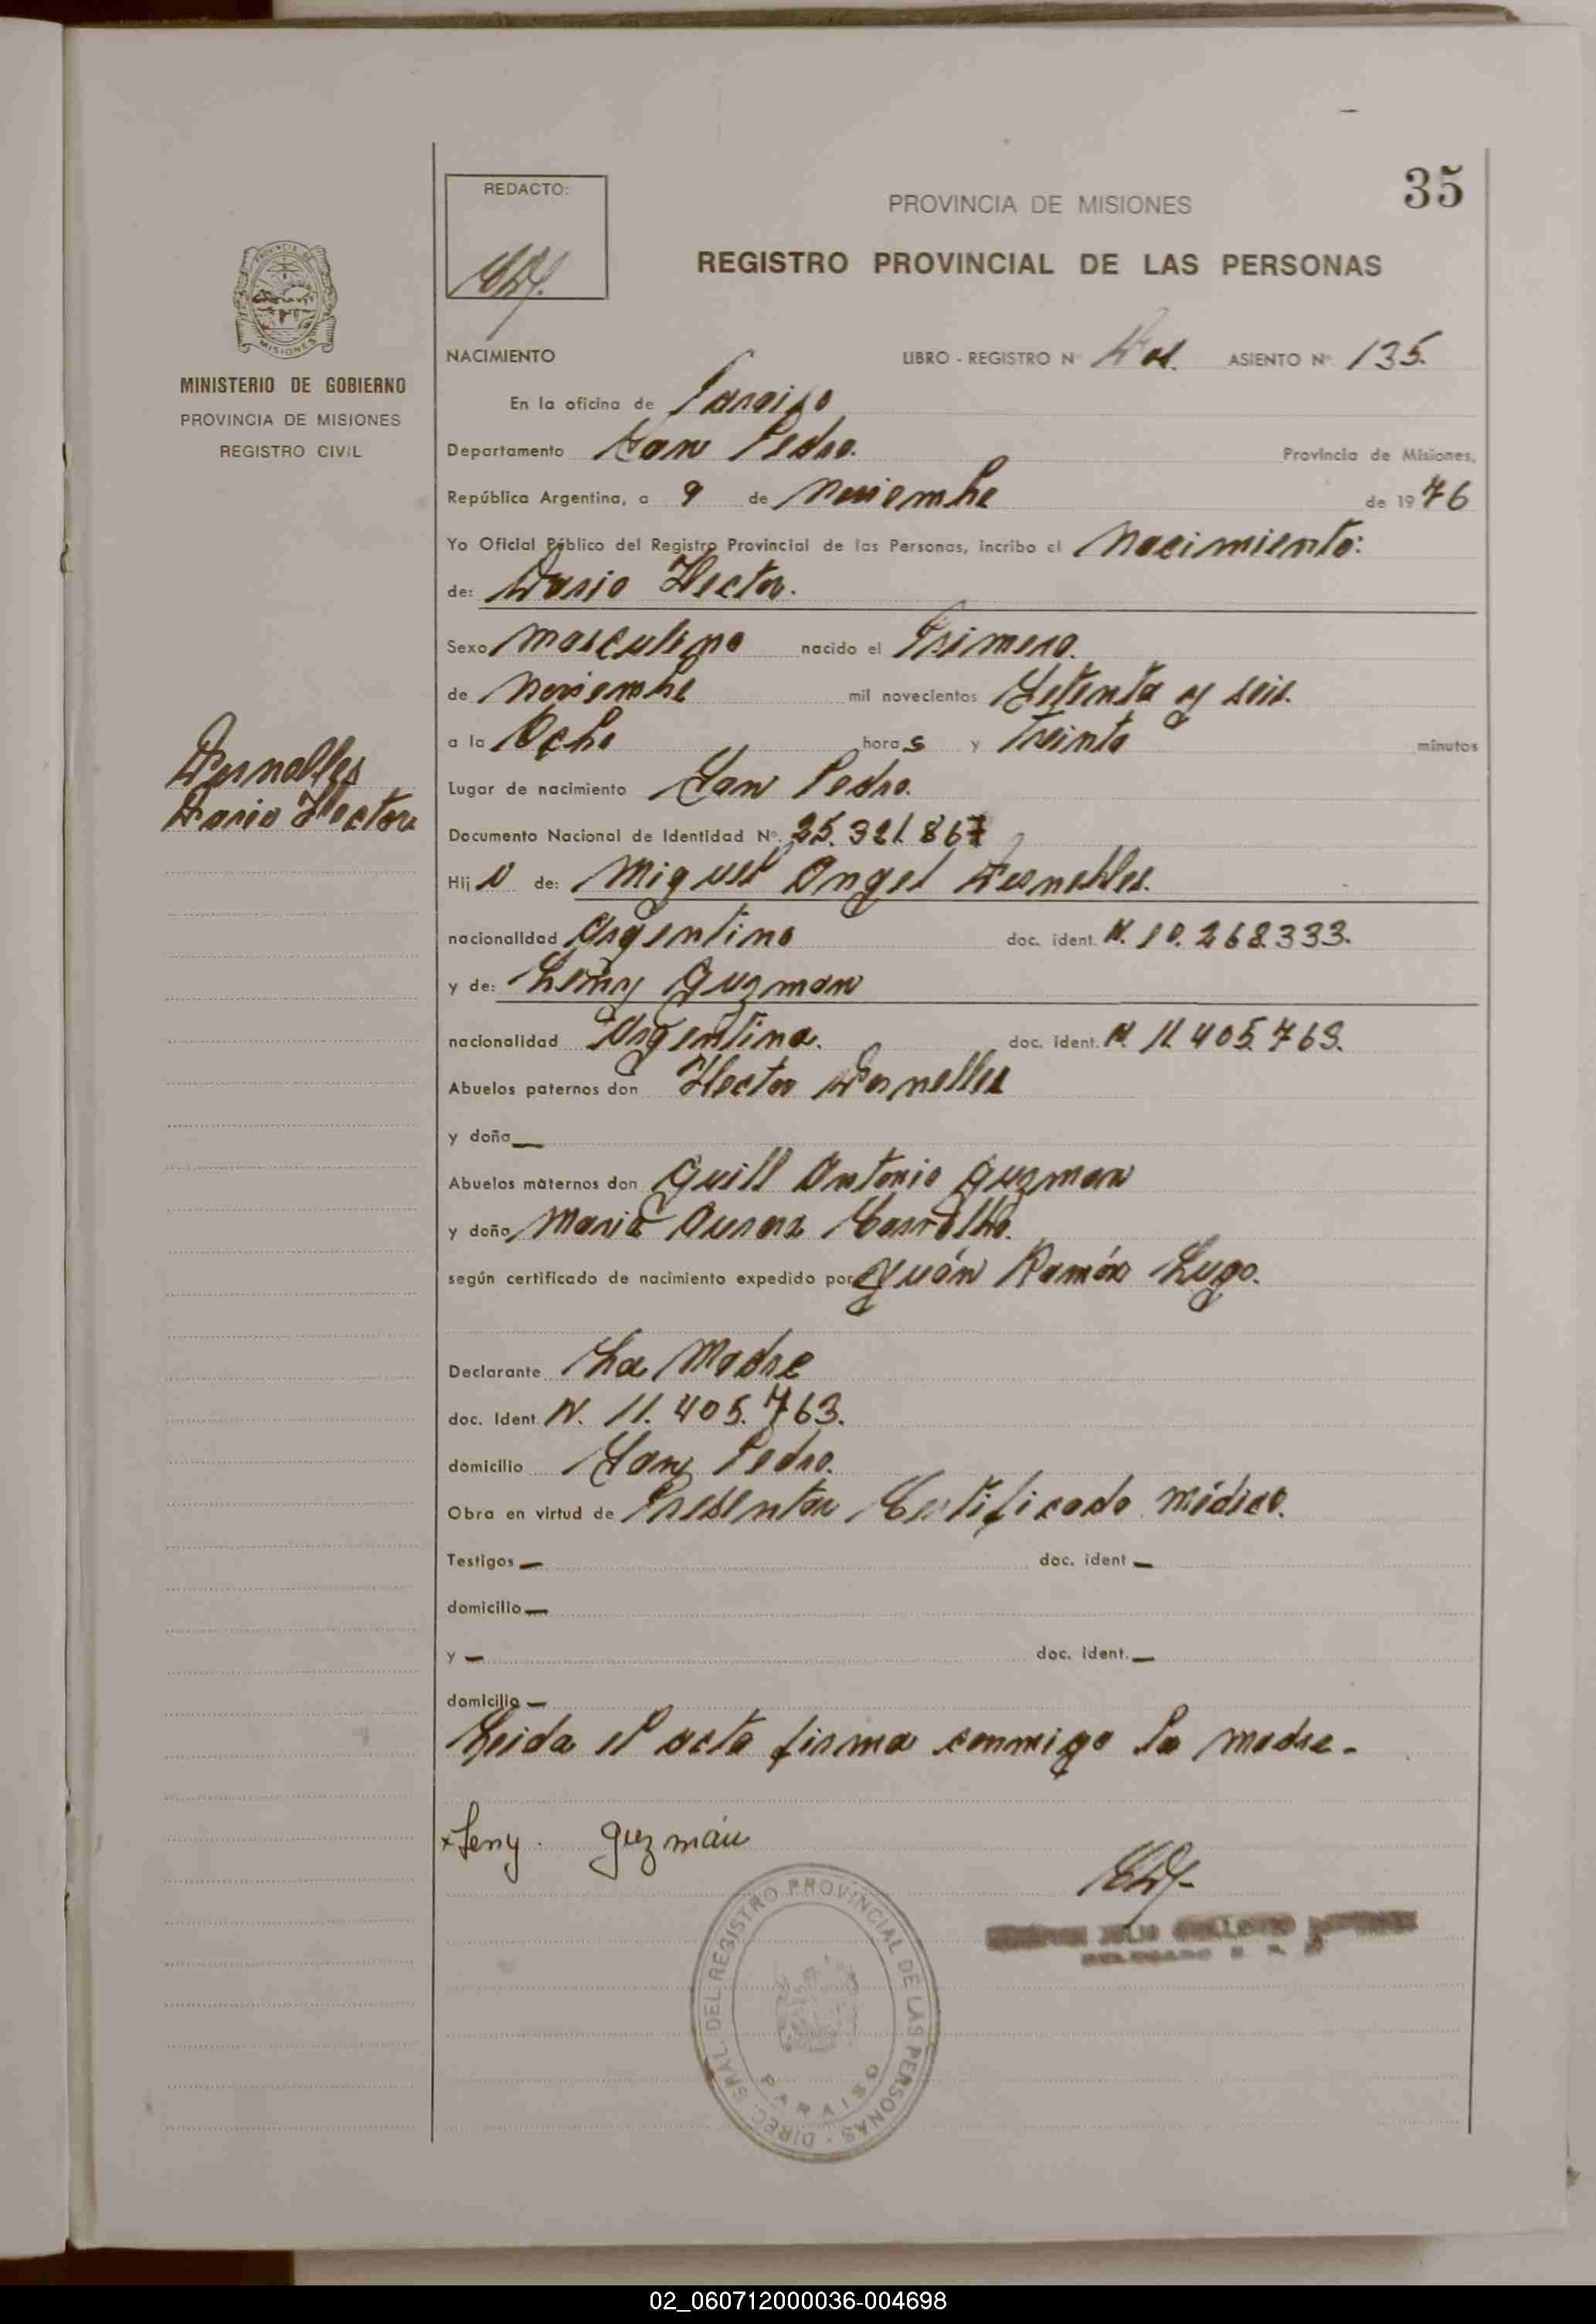 35
REDACTO:
PROVINCIA DE MISIONES
REGISTRO PROVINCIAL DE LAS PERSONAS
PROVINCIA DE MISIONES
MINISTERIO DE GOBIERNO
PROVINCIA DE MISIONES
REGISTRO CIVIL
NACIMIENTO LIBRO - REGISTRO Nº Dos. ASIENTO Nº. 135.
En la oficina de Paraiso
Departamento San Pedro. Provincia de Misiones,
República Argentina, a 9 de Noviembre de 1976
Yo Oficial Público del Registro Provincial de las Personas, incribo el Nacimiento:
de: Dario Hector.
Sexo Masculino nacido el Primero.
de Noviembre mil novecientos Setenta y seis.
a la Ocho horas y Treinta minutos
Dornelles
Dario Hector
Lugar de nacimiento San Pedro.
Documento Nacional de Identidad Nº. 25.321.867
Hijo de: Miguel Angel Dornelles.
nacionalidad Argentino doc. ident. N. 10.268.333.
y de: Leny Guzman
nacionalidad Argentina. doc. ident. N. 11.405.763.
Abuelos paternos don Hector Dornelles
y doña —
Abuelos maternos don Guill Antonio Guzman
y doña Maria
según certificado de nacimiento expedido por Juán Ramón Lugo.
Declarante La Madre
doc. Ident. N. 11.405.763.
domicilio San Pedro.
Obra en virtud de Presentar Certificado médico.
Testigos — doc. ident —
domicilio —
y — doc. ident. —
domicilio —
Leida el acta firma conmigo la madre -
x Leny. Guzmán
DIREC. GRAL. DEL REGISTRO PROVINCIAL DE LAS PERSONAS
PARAISO
02_060712000036-004698